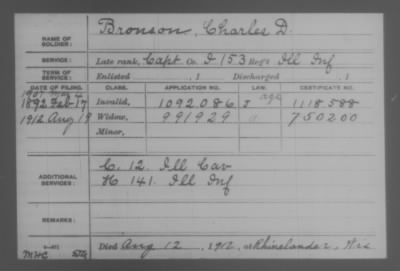 NAME OF SOLDIER: Bronson, Charles D.
SERVICE: Late rank, Capt Co. I 153 Reg't Ill Inf
TERM OF SERVICE: Enlisted , 1 Discharged , 1
DATE OF FILING. CLASS. APPLICATION NO. LAW. CERTIFICATE NO.
1907 May 4 age
1892 Feb 17 Invalid, 1092086 J 1118588
1912 Aug 19 Widow, 991929 750200
Minor,
ADDITIONAL SERVICES: C. 12. Ill Cav
H 141. Ill Inf
REMARKS:
Died Aug 12, 1912, at Rhinelander, Wis